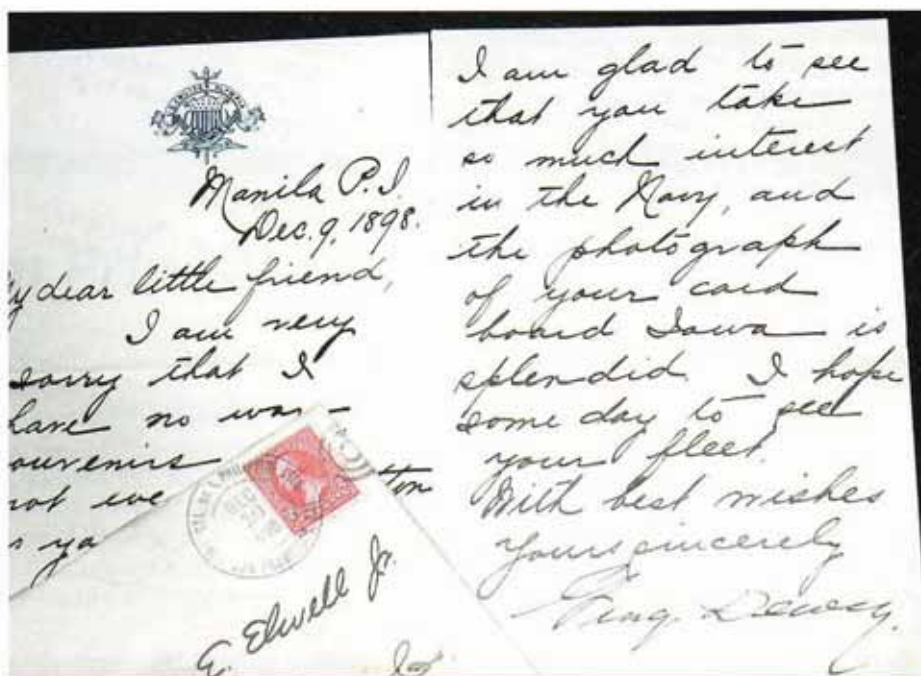 Manila P.I.
Dec. 9, 1898.
y dear little friend,
I am very
sorry that I
have no war–
souvenirs
not eve tton
s yo
E. Elwell Jr.
I am glad to see
that you take
so much interest
in the Navy, and
the photograph
of your card
board Iowa is
splendid. I hope
some day to see
your fleet.
With best wishes
Yours sincerely
George Dewey.